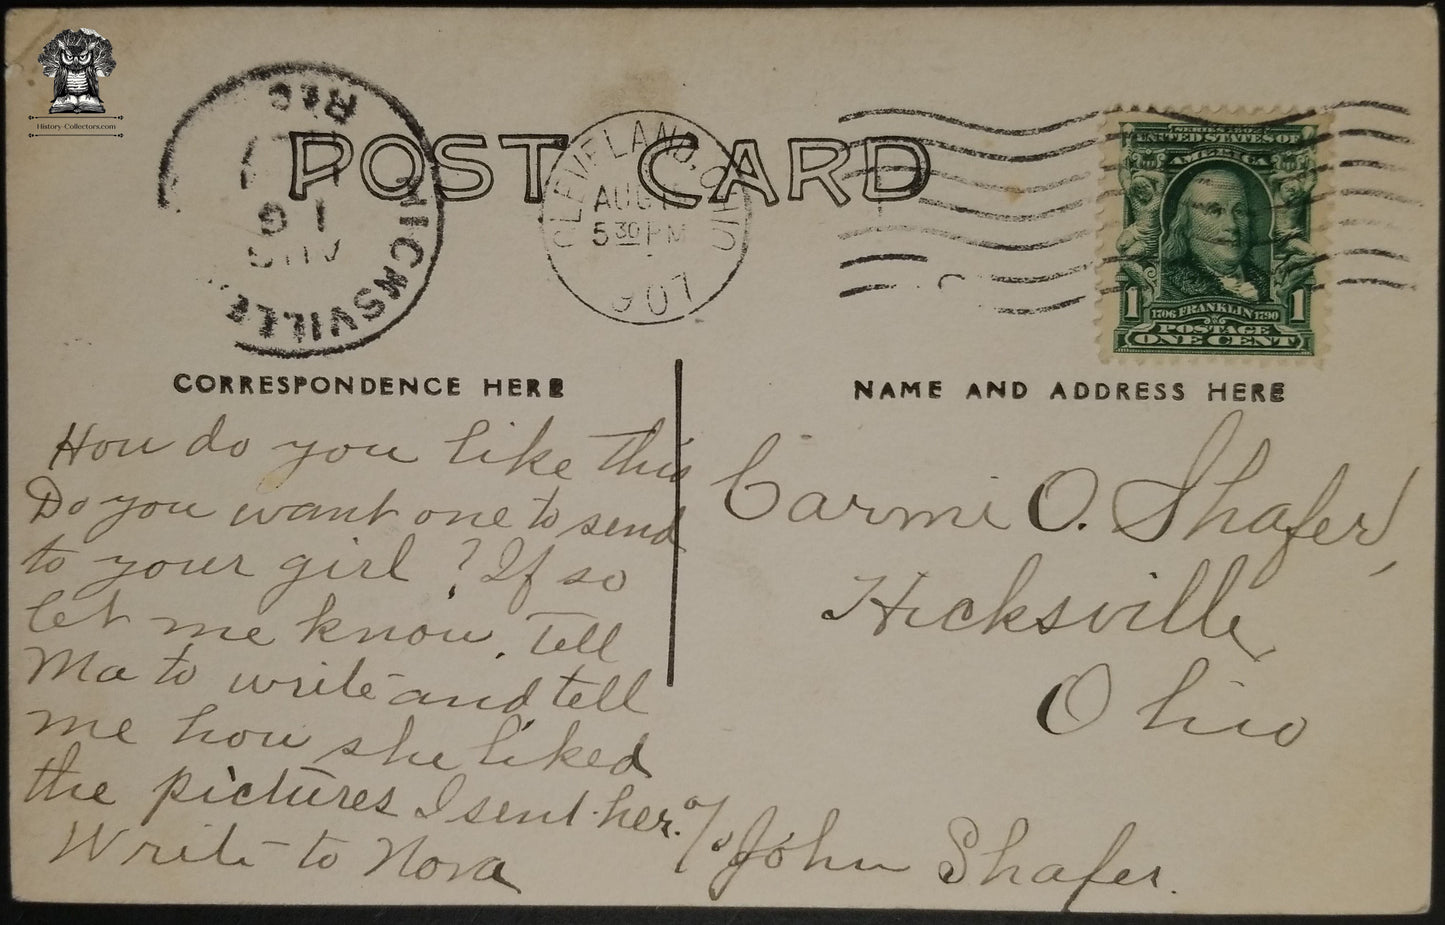 History-Collectors.com
HICKSVILLE
REC
AUG
1
POST CARD
CLEVELAND, OHIO
AUG
5 30 PM
1907
SERIES 1902
UNITED STATES OF
AMERICA
1 1
1706 FRANKLIN 1790
POSTAGE
ONE CENT
CORRESPONDENCE HERE
How do you like this
Do you want one to send
to your girl? If so
let me know. Tell
Ma to write and tell
me how she liked
the pictures I sent her.
Write to Nova
NAME AND ADDRESS HERE
Carmi O. Shafer,
Hicksville,
Ohio
c/o John Shafer.